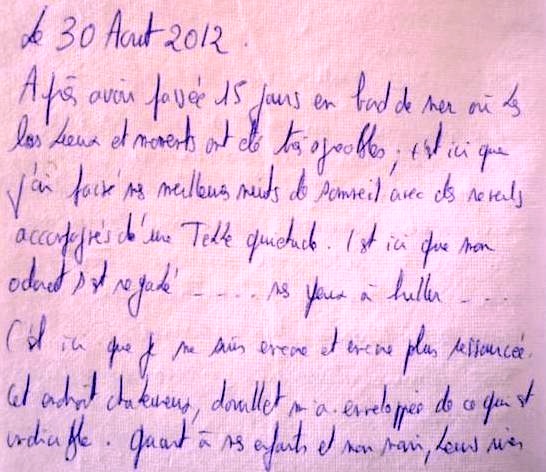 Le 30 Aout 2012.
Après avoir passée 15 jours en bord de mer où les
bas lieux et moments ont été très agréables, c'est ici que
j'ai passé mes meilleures nuits de sommeil avec des réveils
accompagnés d'une Telle quiétude. C'est ici que mon
odorat s'est régalé _ _ _ _ mes yeux à briller _ _ _
C'est ici que je me suis encore et encore plus ressourcée.
Cet endroit chaleureux, douillet m'a enveloppée de ce qui est
indicible. Quant à mes enfants et mon mari, Leurs rires